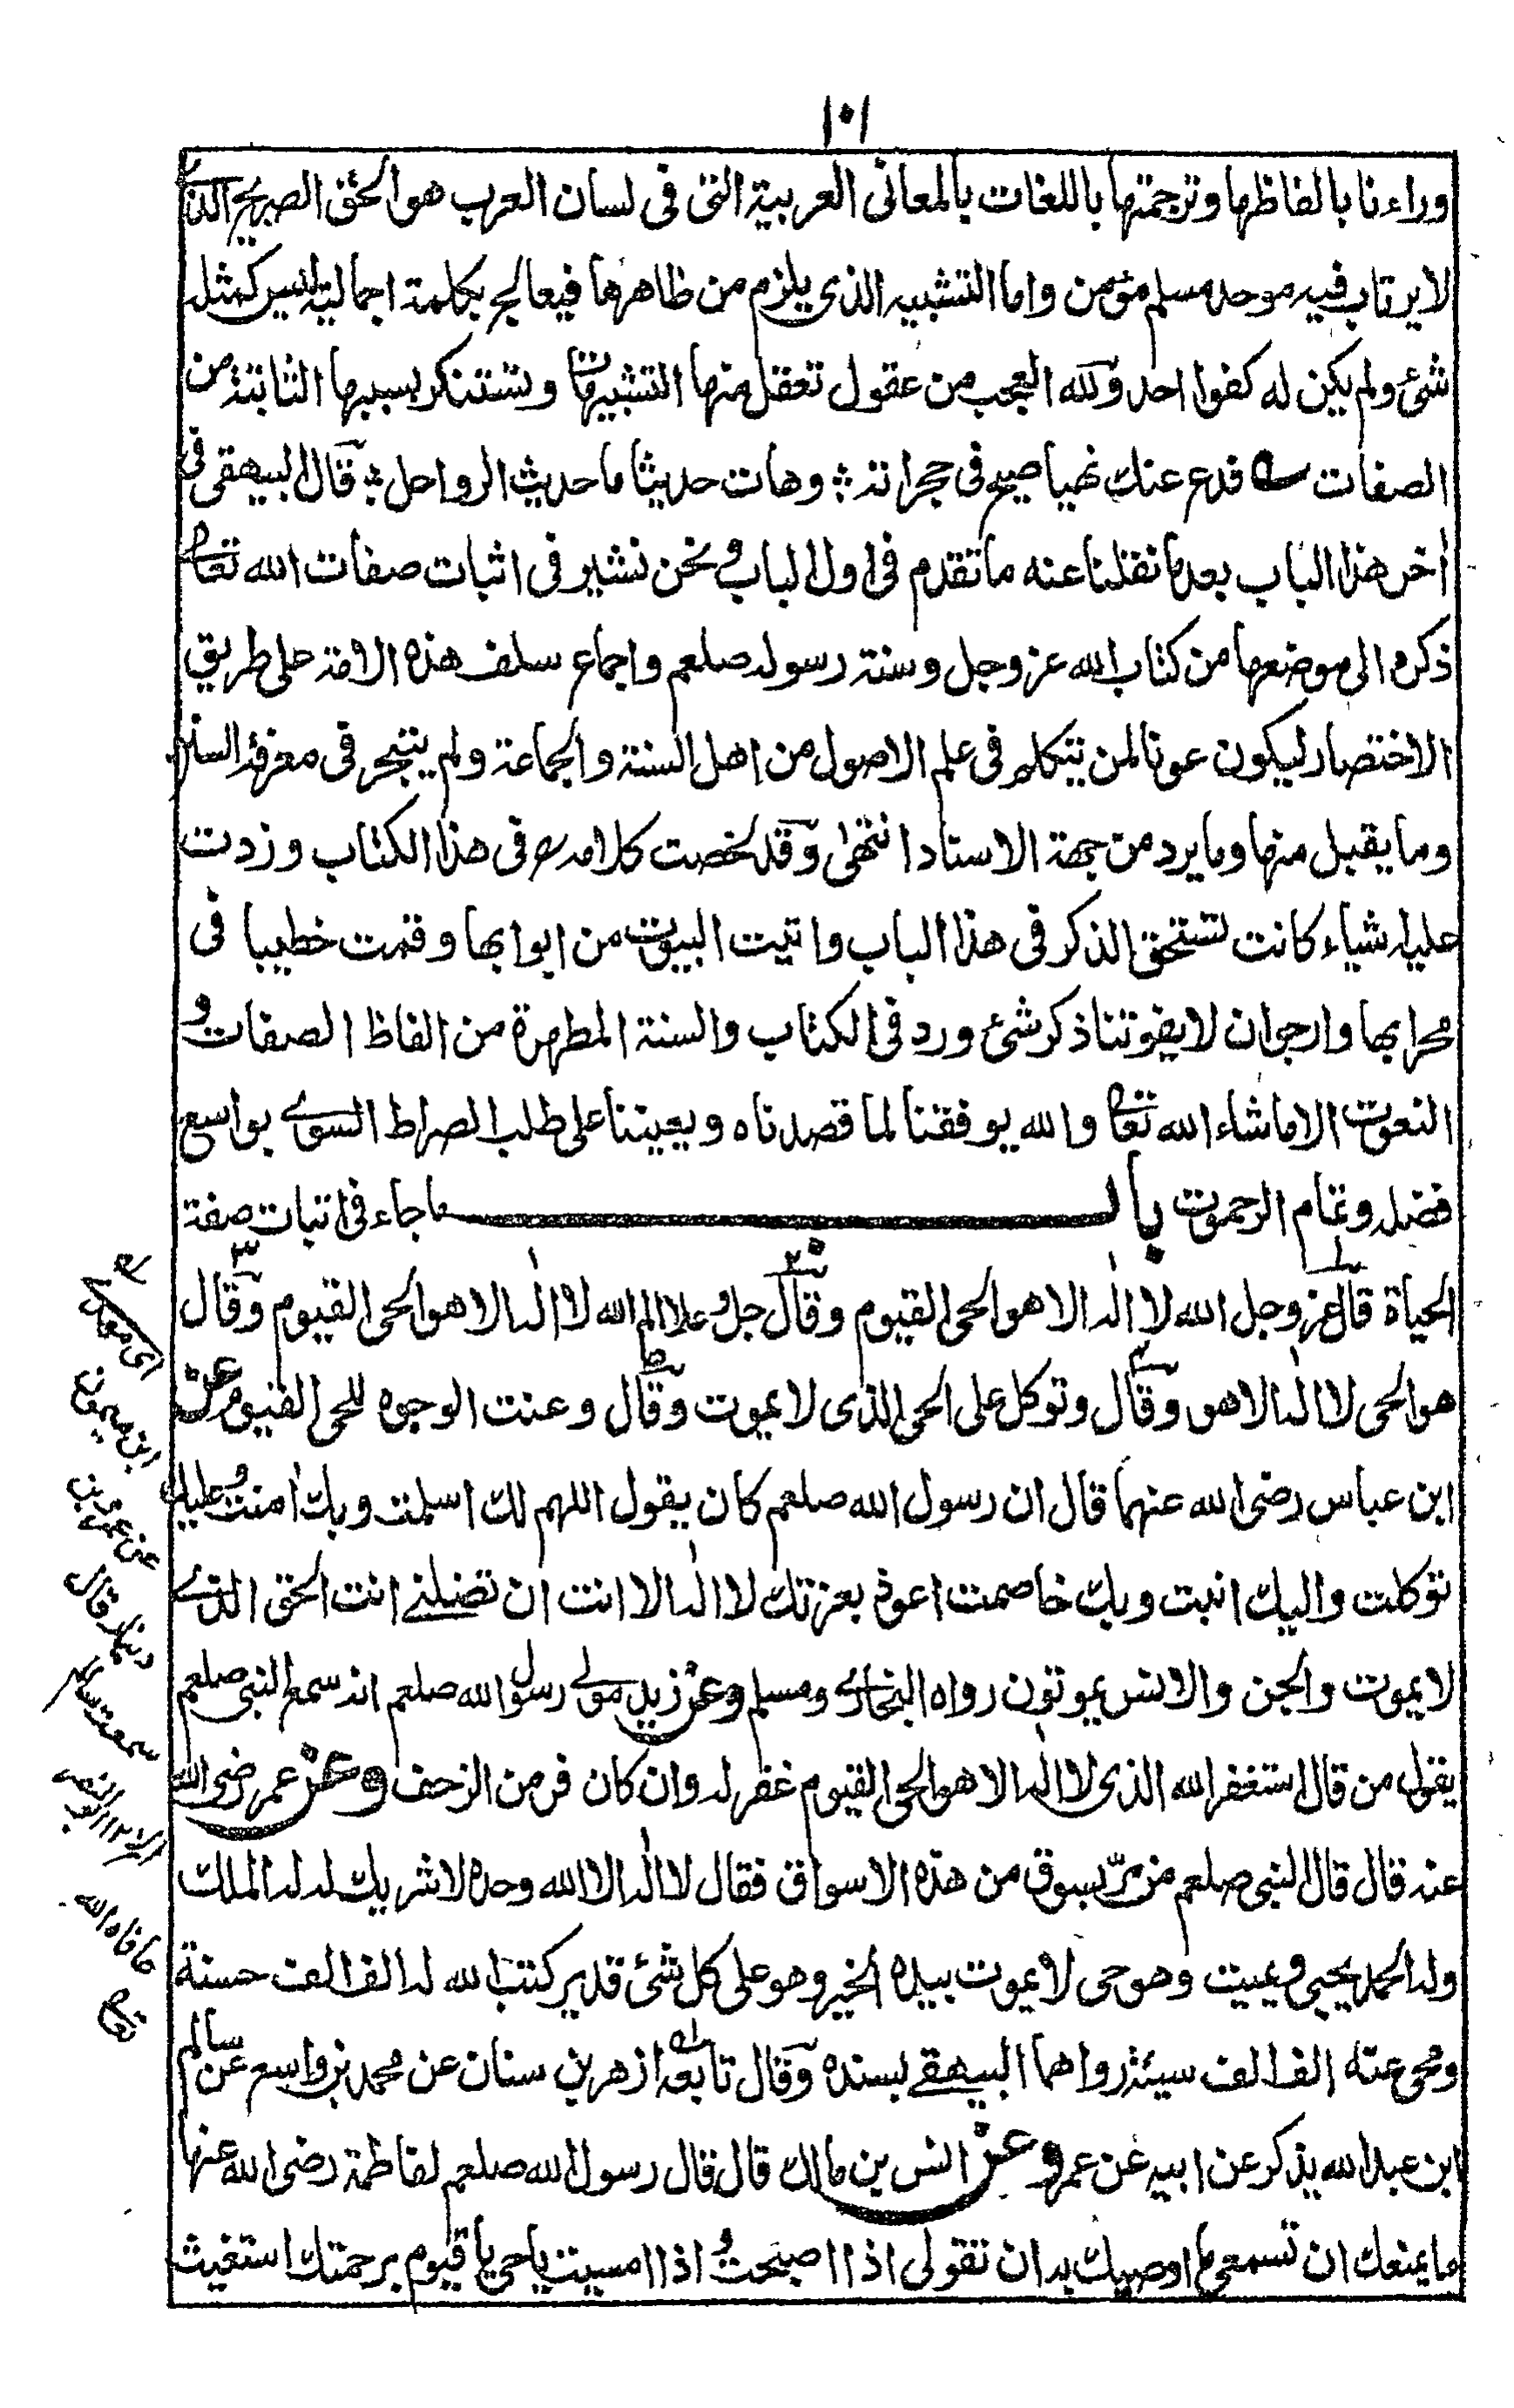 ١٠١
وراءنا بالفاظها وترجمتها باللغات بالمعانى العربية التى فى لسان العرب هو الحق الصريح الذى
لا يرتاب فيه موحد مسلم مؤمن واما التشبيه الذى يلزم من ظاهرها فيعالج بكلمة اجمالية ليس كمثله
شئ ولم يكن له كفوا احد ولله العجب من عقول تعقل منها التشبيهات وتستنكر بسببها الثابتة من
الصفات فدع عنك نهبا صيح فى حجراته ؛ وهات حديثا ما حديث الرواحل ؛ قال البيهقى فى
أخر هذا الباب بعد ما نقلنا عنه ما تقدم فى اول الباب ونحن نشير فى اثبات صفات الله تعالى
ذكره الى موضعها من كتاب الله عز وجل وسنة رسوله صلعم واجماع سلف هذه الامة على طريق
الاختصار ليكون عونا لمن يتكلم فى علم الاصول من اهل السنة والجماعة ولم يتبحر فى معرفة السنن
وما يقبل منها وما يرد من جهة الاسناد انتهى وقد لخصت كلامه فى هذا الكتاب وزدت
عليه اشياء كانت تستحق الذكر فى هذا الباب واتيت البيوت من ابوابها وقمت خطيبا فى
محرابها وارجو ان لا يفوتنا ذكر شئ ورد فى الكتاب والسنة المطهرة من الفاظ الصفات و
النعوت الا ما شاء الله تعالى والله يوفقنا لما قصدناه ويعيننا على طلب الصراط السوے بواسع
فضله وتمام الرحموت باب ما جاء فى اثبات صفة
الحياة قال عز وجل الله لا اله الا هو الحى القيوم وقال جل وعلا الم الله لا اله الا هو الحى القيوم وقال
هو الحى لا اله الا هو وقال وتوكل على الحى الذى لا يموت وقال وعنت الوجوه للحى القيوم وعن
ابن عباس رضى الله عنهما قال ان رسول الله صلعم كان يقول اللهم لك اسلمت وبك أمنت وعليك
توكلت واليك انبت وبك خاصمت اعوذ بعزتك لا اله الا انت ان تضلنے انت الحق الذے
لا يموت والجن والانس يموتون رواه البخارے ومسلم وعن زيد مولے رسول الله صلعم انه سمع النبى صلعم
يقول من قال استغفر الله الذى لا اله الا هو الحى القيوم غفر له وان كان فر من الزحف وعن عمر رضى الله
عنه قال قال النبى صلعم من مرّ بسوق من هذه الاسواق فقال لا اله الا الله وحده لا شريك له له الملك
وله الحمد يحيى ويميت وهو حى لا يموت بيده الخير وهو على كل شئ قدير كتب الله له الف الف حسنة
ومحى عنه الف الف سيئة رواهما البيهقے بسنده وقال تابعه ازهر بن سنان عن محمد بن واسع عن سالم
ابن عبد الله يذكر عن ابيه عن عمر وعن انس بن مالك قال قال رسول الله صلعم لفاطمة رضى الله عنها
ما يمنعك ان تسمعى ما اوصيك به ان تقولى اذا اصبحت واذا امسيت يا حى يا قيوم برحمتك استغيث
ابن ميمون
عن عمرو بن
دينار قال
سمعت سالم
عافاه الله
تعالى